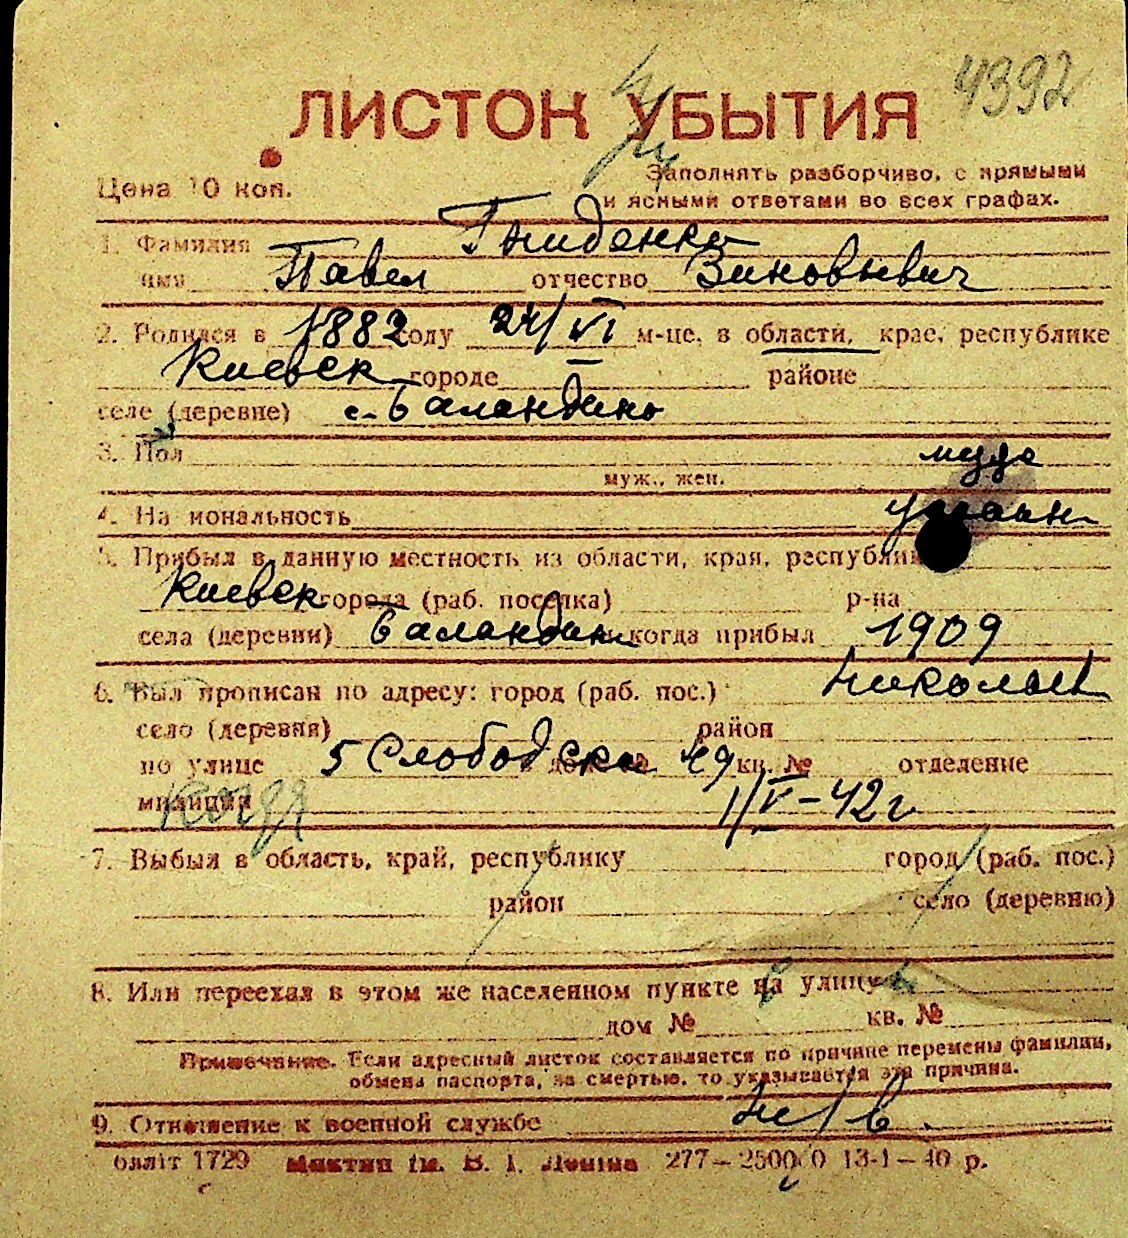 4392
ЛИСТОК УБЫТИЯ
Цена 10 коп.
Заполнять разборчиво, с прямыми
и ясными ответами во всех графах.
1. Фамилия Гниденко
имя Павел отчество Зиновьевич
2. Родился в 1882 году 24/VI м-це, в области, крае, республике
Киевск городе районе
селе (деревне) с. Баландино
3. Пол муж
муж., жен.
4. Национальность
5. Прибыл в данную местность из области, края, республики
Киевск города (раб. поселка) р-на
села (деревни) Баландин когда прибыл 1909
6. Был прописан по адресу: город (раб. пос.) Николаев
село (деревня) район
по улице 5 Слободская в дом № 49 кв. № отделение
милиции когда 1/V-42 г
7. Выбыл в область, край, республику город (раб. пос.)
район село (деревню)
8. Или переехал в этом же населенном пункте на улицу
дом № кв. №
Примечание. Если адресный листок составляется по причине перемены фамилии,
обмена паспорта, за смертью, то указывается эта причина.
9. Отношение к военной службе н/в.
1729 ім. В. І. Леніна 277—250000 13-1—40 р.